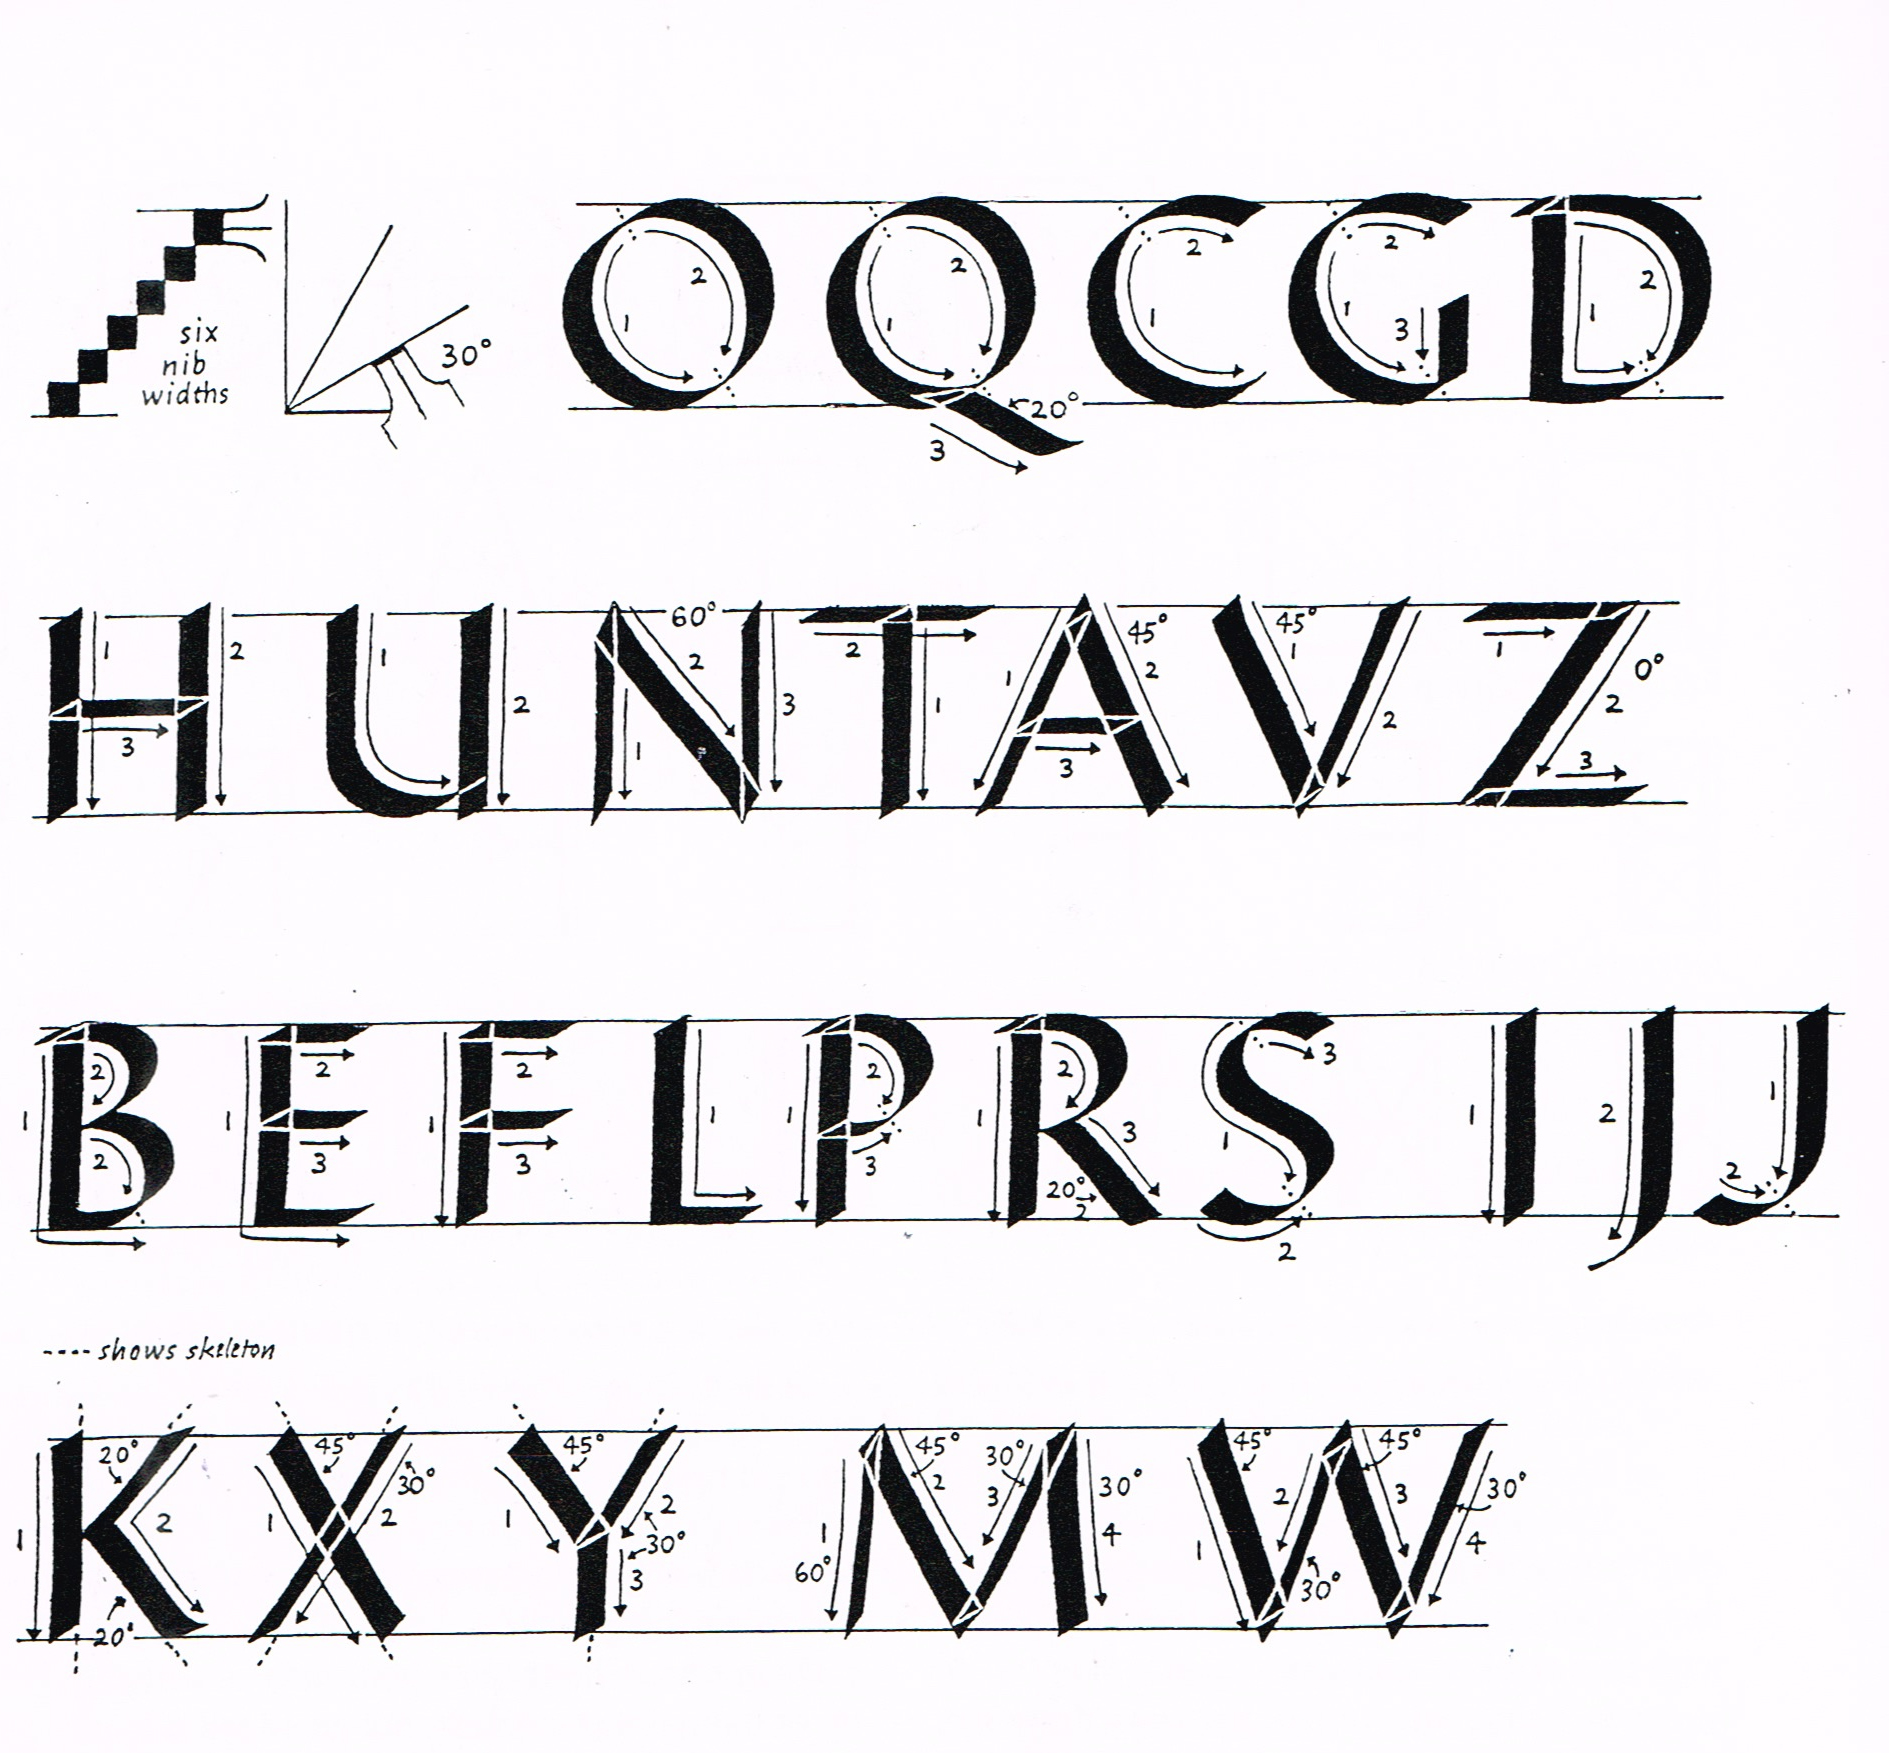 six
nib
widths
30°
O Q C G D
1 2 1 2 3 20° 1 2 1 2 3 1 2
H U N T A V Z
1 2 3 1 2 60° 1 2 3 2 1 1 45° 2 3 45° 1 2 1 0° 2 3
B E F L P R S I J J
1 2 2 1 2 3 1 2 3 1 1 2 3 1 2 3 20° 2 1 3 2 1 2 1 2
---- shows skeleton
K X Y M W
1 20° 2 20° 45° 1 2 30° 45° 1 2 30° 3 1 60° 45° 2 30° 3 30° 4 1 45° 2 30° 45° 3 30° 4